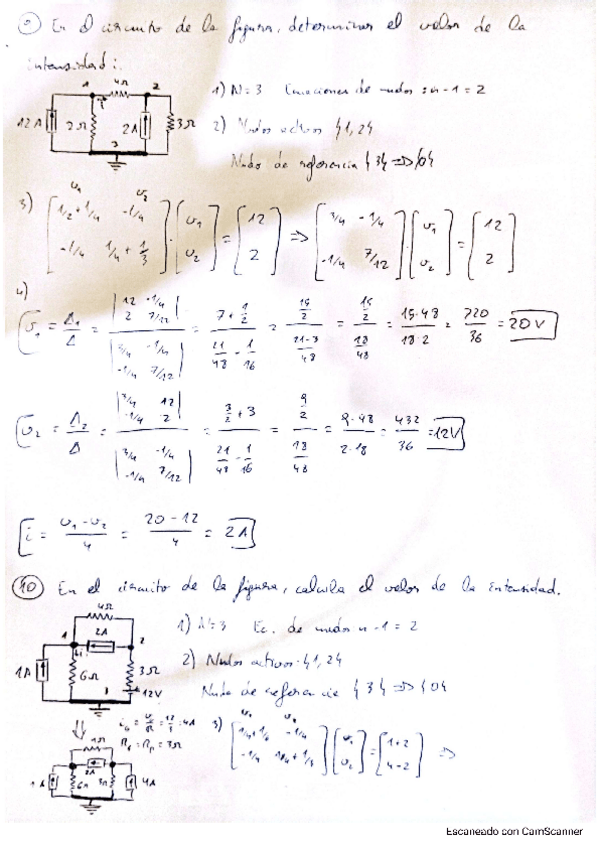 9) En el circuito de la figura, determinar el valor de la
intensidad i.
1) N=3 Ecuaciones de nudos : n-1=2
2) Nudos activos {1,2}
Nudo de referencia {3} => {0}
1 4Ω 2
i
12A 2Ω 2A 3Ω
3
3)
v1 v2
[1/2+1/4 -1/4; -1/4 1/4+1/3]·[v1; v2] = [12; 2] => [3/4 -1/4; -1/4 7/12]·[v1; v2] = [12; 2]
4)
v1 = Δ1/Δ = |12 -1/4; 2 7/12| / |3/4 -1/4; -1/4 7/12| = (7+1/2)/(21/48-1/16) = (15/2)/((21-3)/48) = (15/2)/(18/48) = 15·48/18·2 = 720/36 = 20V
v2 = Δ2/Δ = |3/4 12; -1/4 2| / |3/4 -1/4; -1/4 7/12| = (3/2+3)/(21/48-1/16) = (9/2)/(18/48) = 9·48/2·18 = 432/36 = 12V
i = (v1-v2)/4 = (20-12)/4 = 2A
10) En el circuito de la figura, calcula el valor de la intensidad.
4Ω
1 2A 2
1) N=3 Ec. de nudos n-1=2
1A 6Ω 3Ω
2) Nudos activos {1,2}
12V
Nudo de referencia {3} => {0}
3) v1 v2
=4A
=3Ω
2A
1A 6Ω 3Ω 4A
= [1+2; 4-2] =>
Escaneado con CamScanner